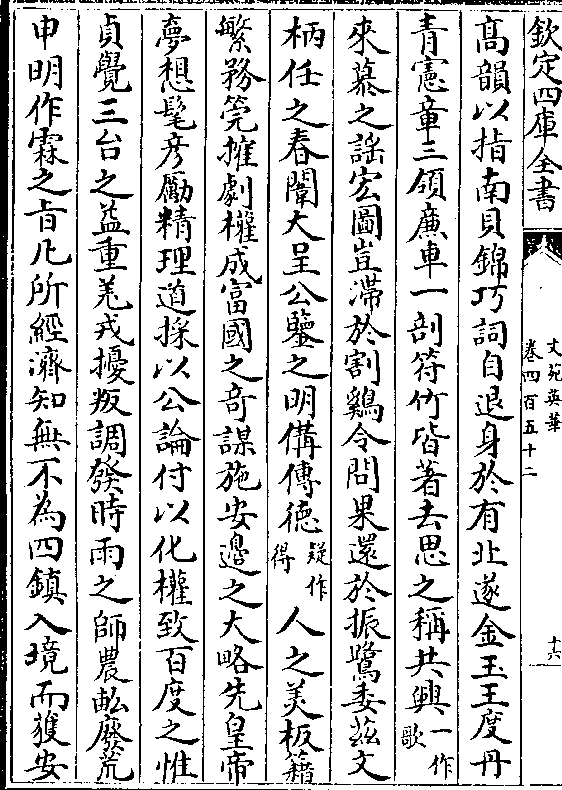 欽定四庫全書
文苑英華
卷四百五十二
十六
高韻以指南貝錦巧詞自退身於有北遂金玉王度丹
青憲章三領廉車一剖符竹皆著去思之稱共興一作歌
來慕之謡宏圖豈滯於割鷄令問果還於振鷺委兹文
柄任之春闈大呈公鑒之明備傳德疑作得人之美板籍
繁務筦搉劇權成富國之奇謀施安邊之大略先皇帝
夢想髦彦勵精理道採以公論付以化權致百度之惟
貞覺三台之益重羌戎擾叛調發時雨之師農畝廢荒
申明作霖之旨凡所經濟知無不為四鎮入境而獲安